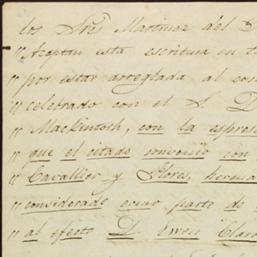 los Sres Martinez del
"Aceptan esta escritura en t
"por estar arreglada al con
"celebrado con el S. D
"Mackintosh, con la espres
"que el citado convenio con
"Cavallier y Flores, herma
"considerado como parte de
"al efecto D. Owen Clar